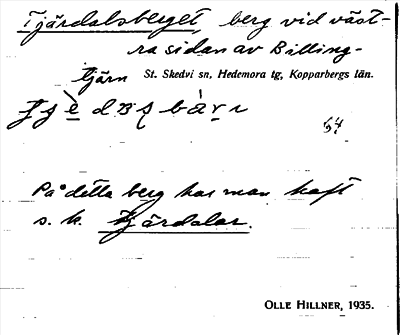 Tjärdalsberget, berg vid väst-
ra sidan av Billing-
tjärn St. Skedvi sn, Hedemora tg, Kopparbergs län.
64
På detta berg har man haft
s. k. tjärdalar.
OLLE HILLNER, 1935.